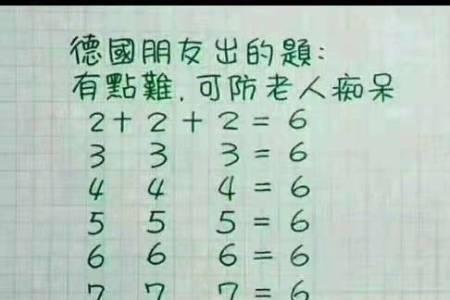 德國朋友出的題:
有點難,可防老人痴呆
2+ 2 + 2 = 6
3 3 3 = 6
4 4 4 = 6
5 5 5 = 6
6 6 6 = 6
7 7 7 = 6